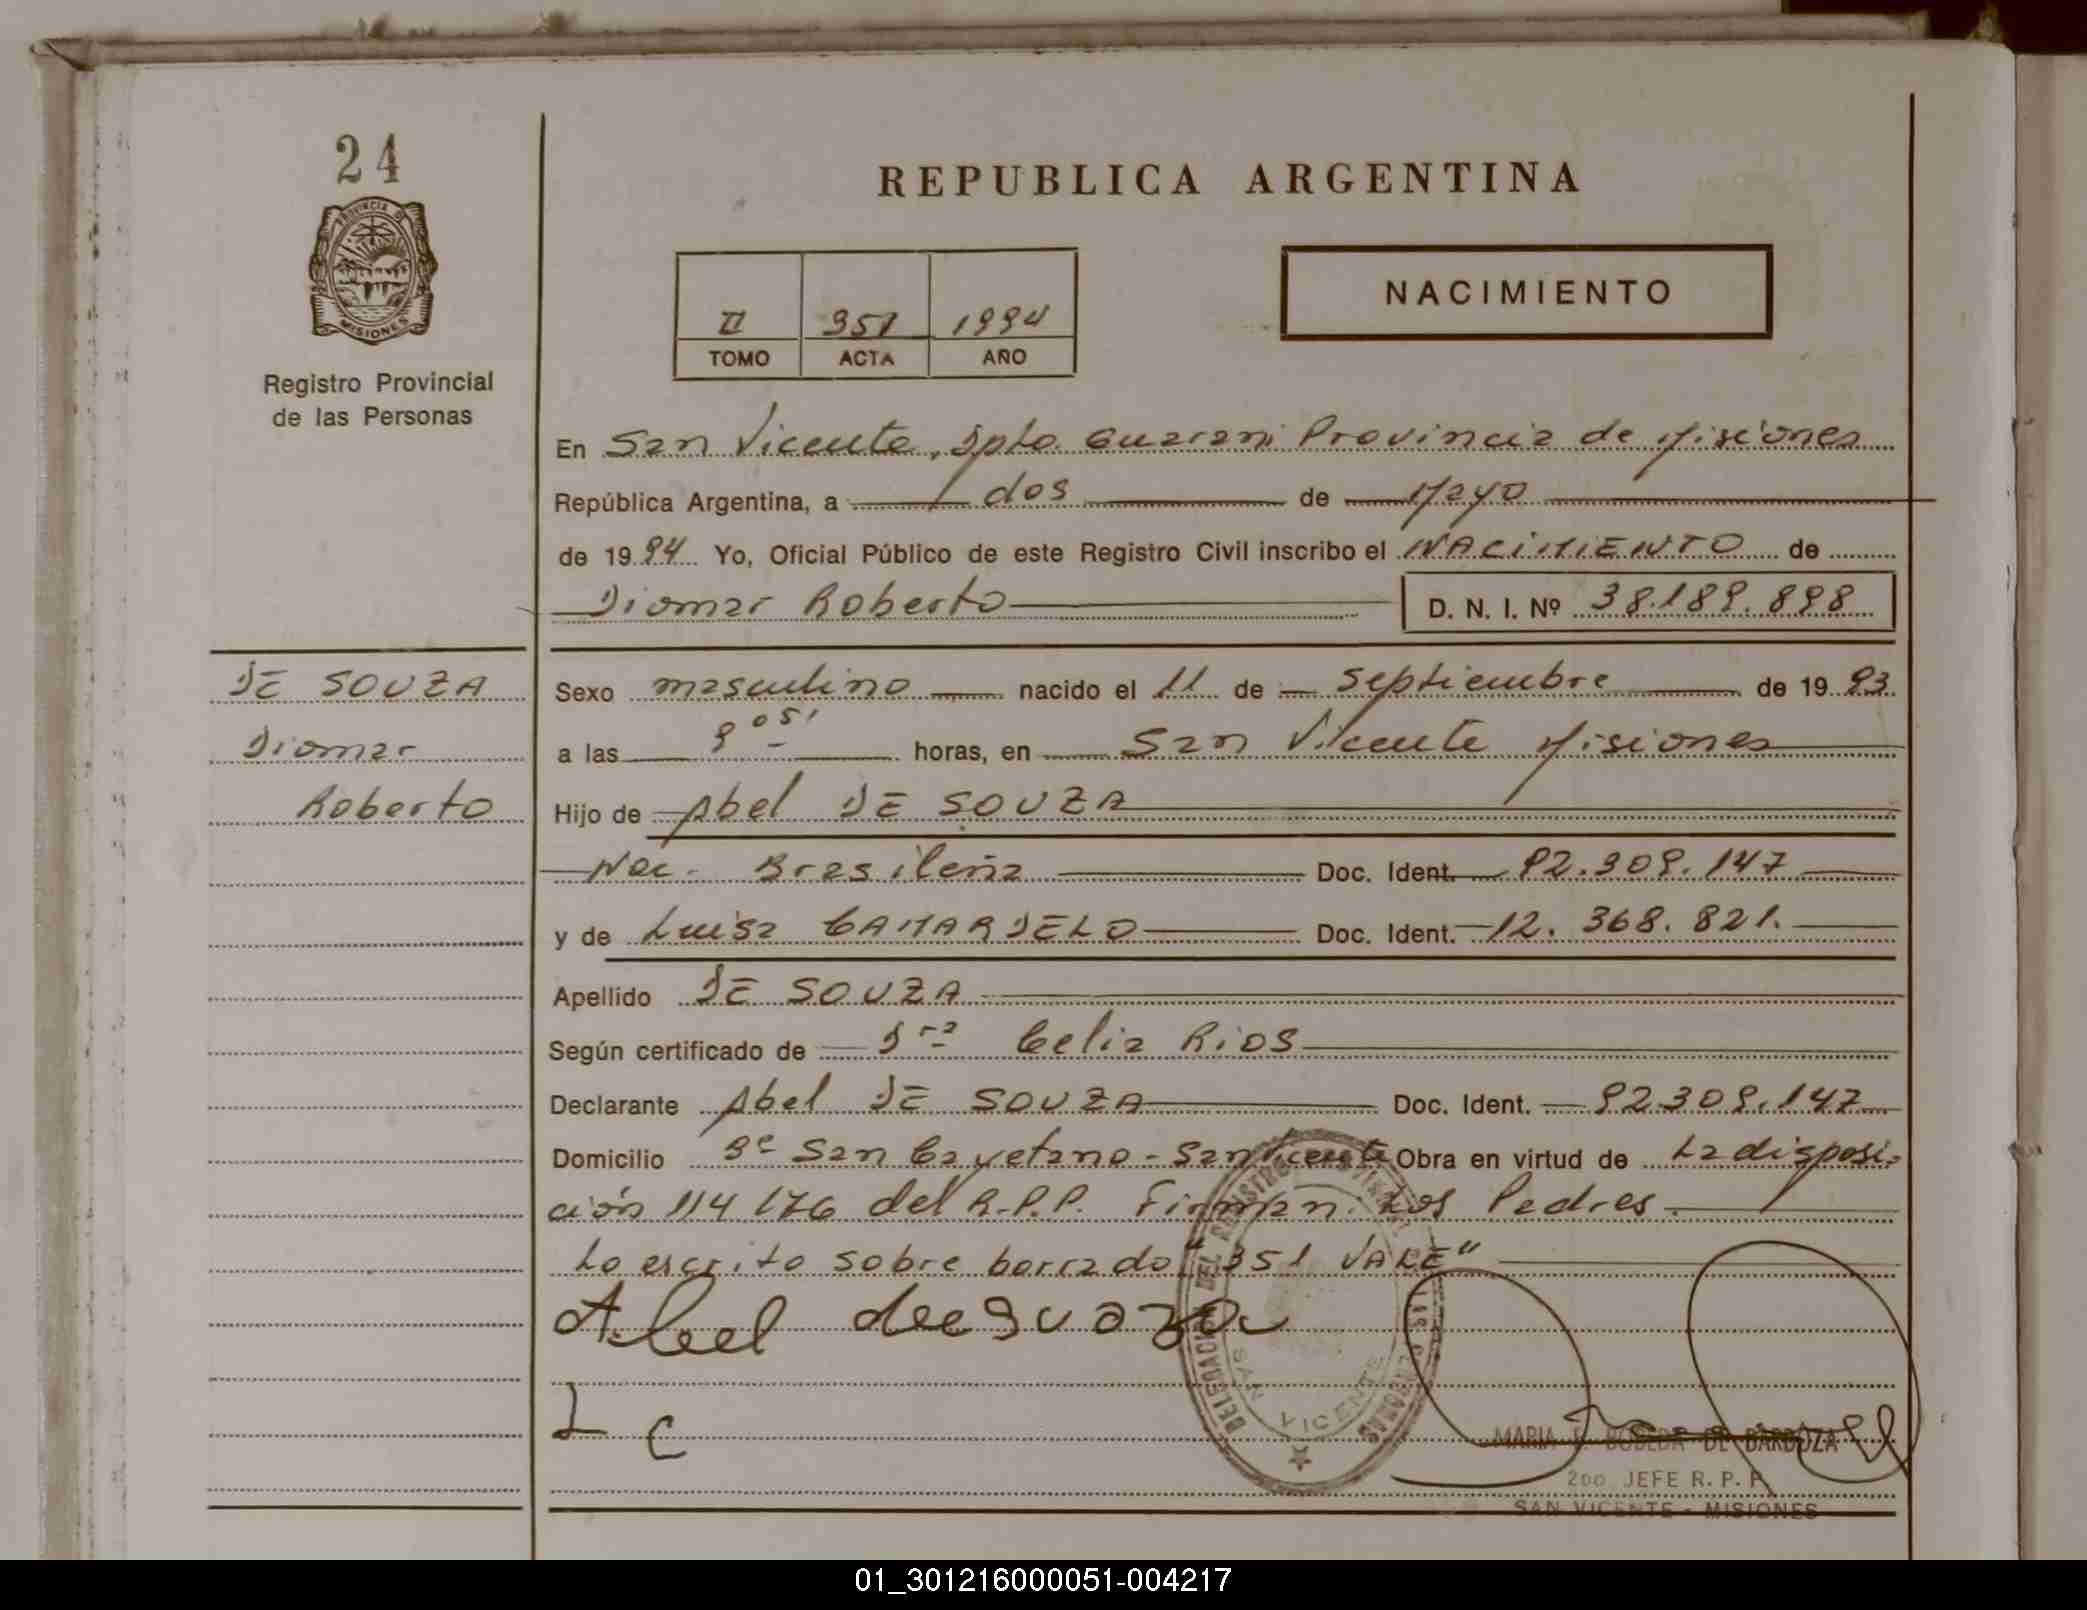 24
PROVINCIA DE
MISIONES
Registro Provincial
de las Personas
REPUBLICA ARGENTINA
NACIMIENTO
II 351 1994
TOMO ACTA AÑO
En San Vicente, Dpto. Guarani Provincia de Misiones
República Argentina, a dos de Mayo
de 1994 Yo, Oficial Público de este Registro Civil inscribo el NACIMIENTO de
Diomar Roberto D. N. I. Nº 38.189.898
DE SOUZA
Diomar
Roberto
Sexo masculino nacido el 11 de Septiembre de 1993
a las 9 05' horas, en San Vicente Misiones
Hijo de Abel DE SOUZA
Nac. Brasileña Doc. Ident. 92.309.147
y de Luisa CAMARDELO Doc. Ident. 12.368.821.
Apellido DE SOUZA
Según certificado de Dra Celia Rios
Declarante Abel DE SOUZA Doc. Ident. 92309.147
Domicilio Bº San Cayetano - San Vicente Obra en virtud de La disposi-
ción 114/76 del R.P.P. Firman Los Padres.
Lo escrito sobre borrado "351 VALE"
Abel de suoza
L C
DELEGACION DEL REGISTRO
SAN VICENTE
MARIA E. BOBEDA DE BARBOZA
2do JEFE R. P. P.
SAN VICENTE - MISIONES
01_301216000051-004217